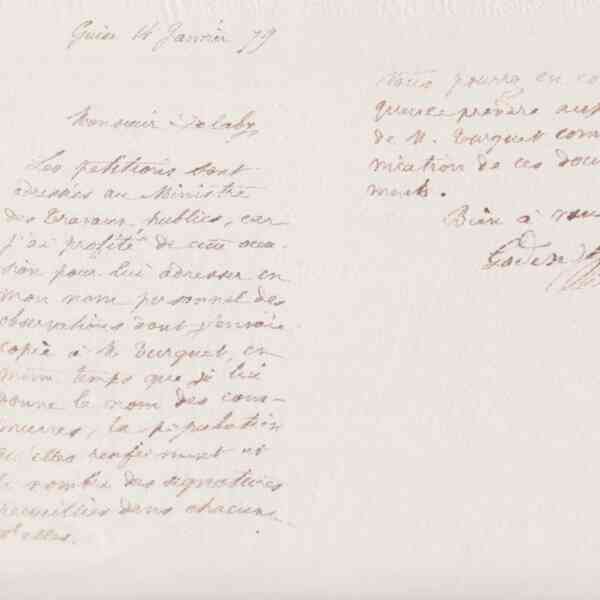 Guise 14 Janvier 79
Monsieur Delaby
Les petitions sont
adressées au Ministre
des Travaux publics, car
j'ai profité de cette occa-
sion pour lui adresser en
mon nom personnel des
observations dont j'envoie
copie à M. Turquet, en
même temps que je lui
donne le nom des com-
munes, la population
qu'elles renferment et
le nombre des signatures
recueillies dans chacune
d'elles.
Vous pourrez en co
prendre
de M. Turquet com
nication de ces docu
ments.
Bien à vous
Godin